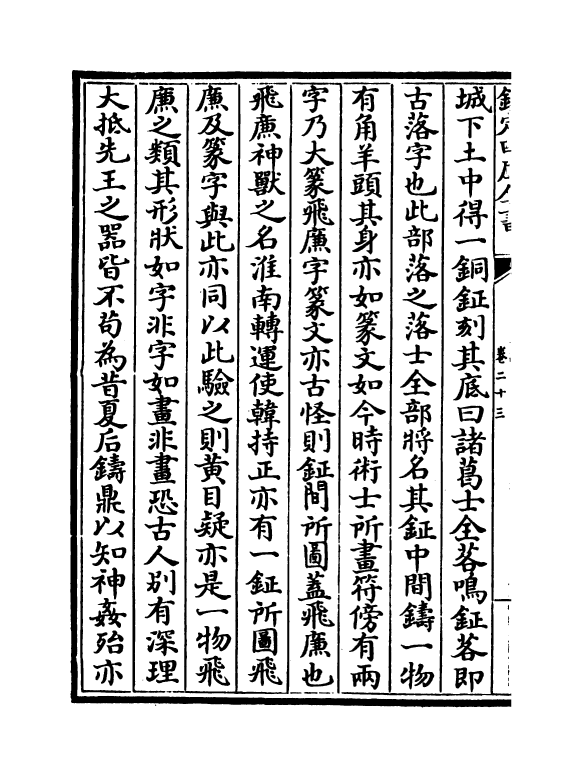 欽定四庫全書
卷二十三
城下土中得一銅鉦刻其底曰諸葛士全茖鳴鉦茖即
古落字也此部落之落士全部將名其鉦中間鑄一物
有角羊頭其身亦如篆文如今時術士所畫符傍有兩
字乃大篆飛廉字篆文亦古怪則鉦間所圖蓋飛廉也
飛廉神獸之名淮南轉運使韓持正亦有一鉦所圖飛
廉及篆字與此亦同以此驗之則黄目疑亦是一物飛
廉之類其形狀如字非字如畫非畫恐古人别有深理
大抵先王之器皆不苟為昔夏后鑄鼎以知神姦殆亦